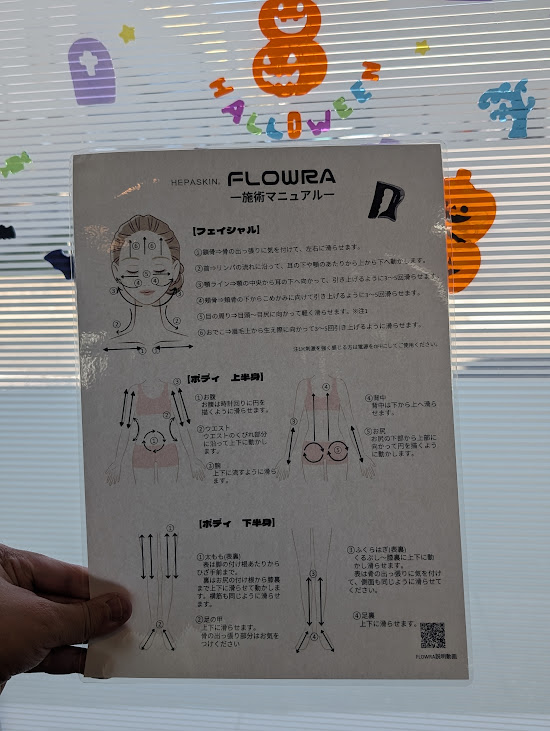 HALLOWEEN
HEPASKIN. FLOWRA
ー施術マニュアルー
【フェイシャル】
①鎖骨⇒骨の出っ張りに気を付けて、左右に滑らせます。
②首⇒リンパの流れに沿って、耳の下や顎のあたりから上から下へ動かします。
③顎ライン⇒顎の中央から耳の下へ向かって、引き上げるように3〜5回滑らせます。
④頬骨⇒頬骨の下からこめかみに向けて引き上げるように3〜5回滑らせます。
⑤目の周り⇒目頭〜目尻に向かって軽く滑らします。※注1
⑥おでこ⇒眉毛上から生え際に向かって3〜5回引き上げるように滑らせます。
注1)※刺激を強く感じる方は電源をOFFにしてご使用ください。
【ボディ 上半身】
①お腹
お腹は時計回りに円を
描くように滑らせます。
②ウエスト
ウエストのくびれ部分
に沿って上下に動かしま
す。
③腕
上下に流すように滑らせ
ます。
④背中
背中は下から上へ滑ら
せます。
⑤お尻
お尻の下部から上部に
向かって円を描くよう
に動かします。
【ボディ 下半身】
①太もも(表裏)
表は脚の付け根あたりから
ひざ手前まで。
裏はお尻の付け根から膝裏
まで上下に滑らせて動かしま
す。横筋も同じように滑らせ
ます。
②足の甲
上下に滑らせます。
骨の出っ張り部分はお気を
つけください
③ふくらはぎ(表裏)
くるぶし〜膝裏に上下に動
かし滑らせます。
表は骨の出っ張りに気を付け
て、側面も同じように滑らせて
ください。
④足裏
上下に滑らせます。
FLOWRA説明動画